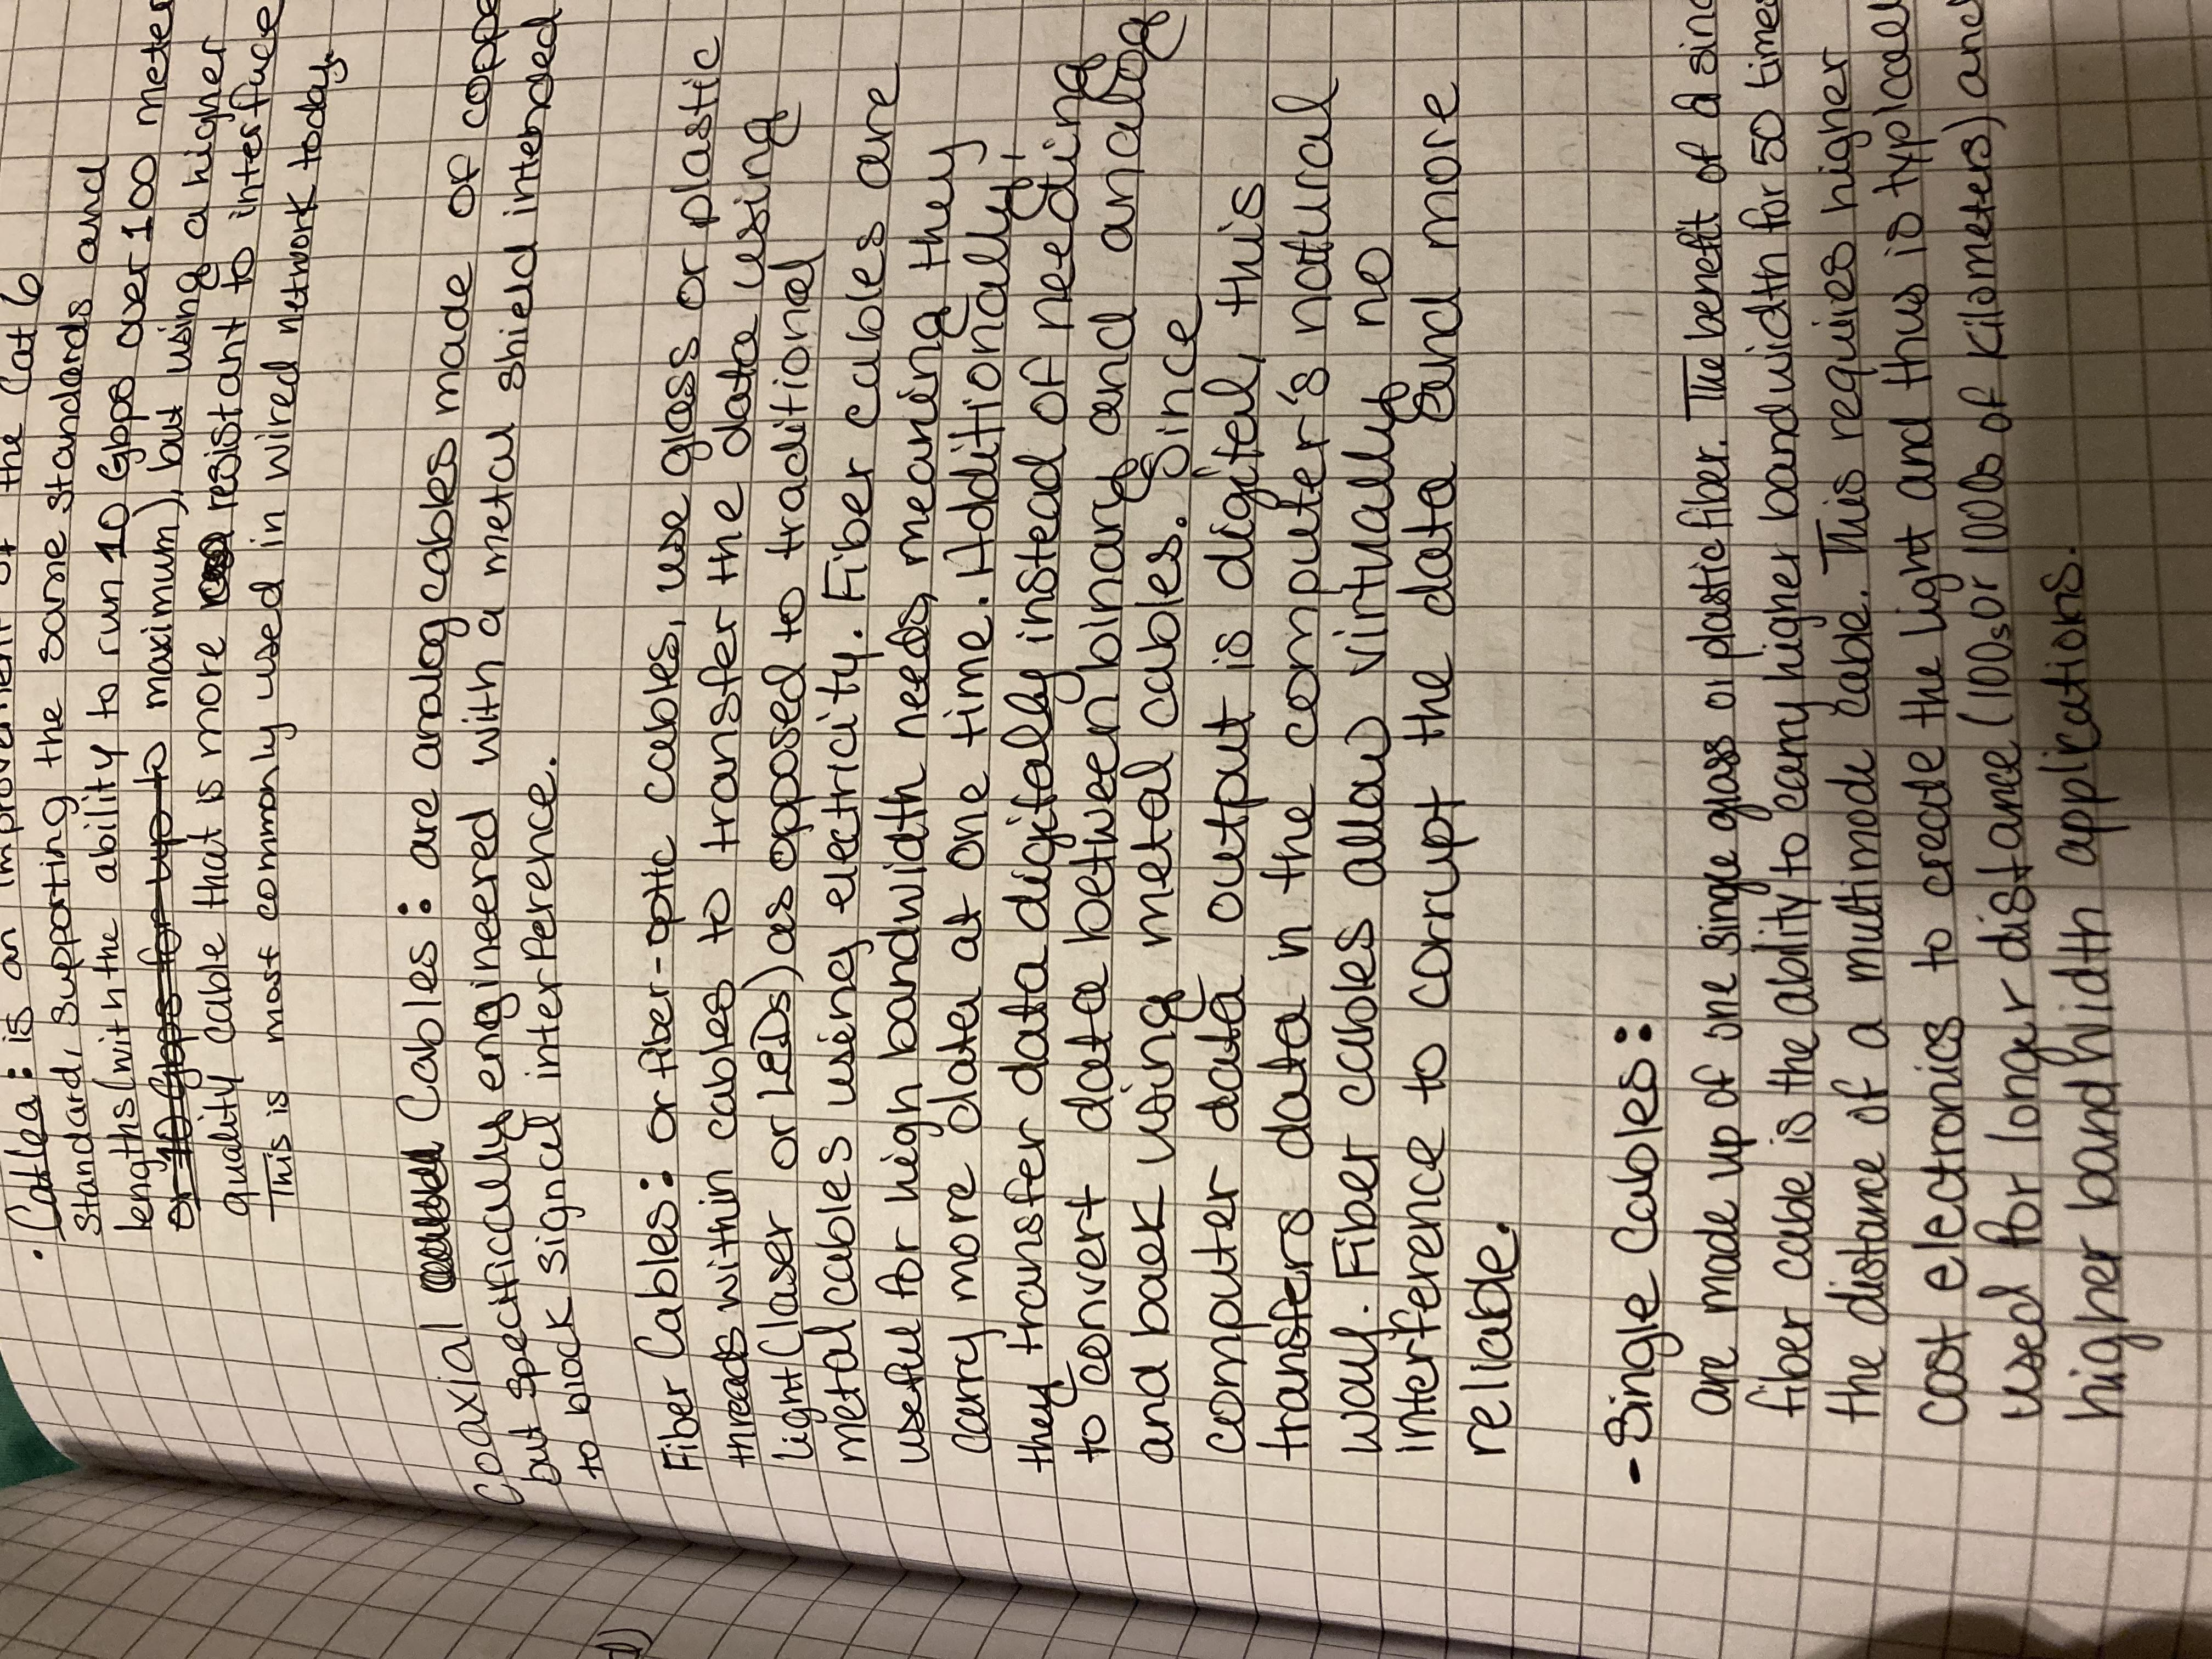 · Cat6a: is an improvement of the Cat 6
standard, supporting the same standards and
lengths (with the ability to run 10 Gbps over 100 meter
or 10 Gbps for up to maximum), but using a higher
quality cable that is more resistant to interference
This is most commonly used in wired network today.
Coaxial Cables: are analog cables made of coppe
but specifically engineered with a metal shield intended
to block signal interference.
Fiber Cables: or fiber-optic cables, use glass or plastic
threads within cables to transfer the data using
light (laser or LEDs) as opposed to traditional
metal cables using electricity. Fiber cables are
useful for high bandwidth needs, meaning they
carry more data at one time. Additionally,
they transfer data digitally instead of needing
to convert data between binary and analog
and back using metal cables. Since
computer data output is digital, this
transfers data in the computer's natural
way. Fiber cables allow virtually no
interference to corrupt the data and more
reliable.
- Single Cables:
are made up of one single glass or plastic fiber. The benefit of a sing
fiber cable is the ability to carry higher bandwidth for 50 times
the distance of a multimode cable. This requires higher
cost electronics to create the light and thus is typicall
used for longer distance (100s or 1000s of kilometers) and
higher bandwidth applications.